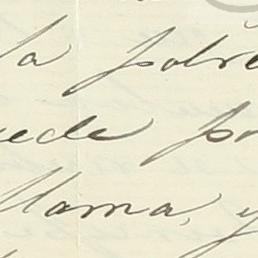 la pobre
uede po
llama, y